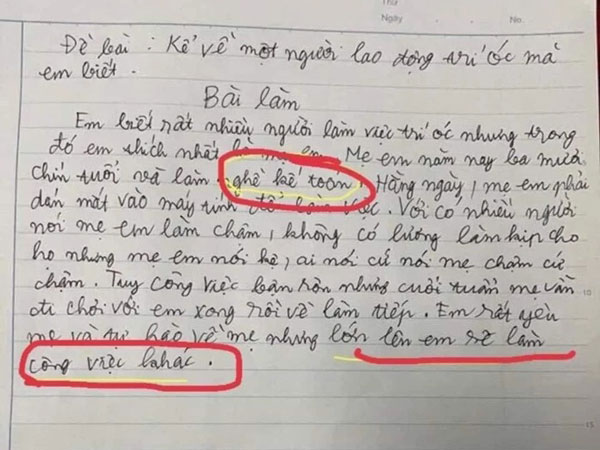 Thứ
Ngày
No.
Đề bài : Kể về một người lao động trí óc mà
em biết.
Bài làm
Em biết rất nhiều người làm việc trí óc nhưng trong
đó em thích nhất là mẹ em. Mẹ em năm nay ba mươi
chín tuổi và làm nghề kế toán. Hằng ngày, mẹ em phải
dán mắt vào máy tính để làm việc. Với có nhiều người
nói mẹ em làm chậm, không có lương làm kịp cho
họ nhưng mẹ em nói kệ, ai nói cứ nói mẹ chậm cứ
chậm. Tuy công việc bận rộn nhưng cuối tuần mẹ vẫn
đi chơi với em xong rồi về làm tiếp. Em rất yêu
mẹ và tự hào về mẹ nhưng lớn lên em sẽ làm
công việc khác.
10
15